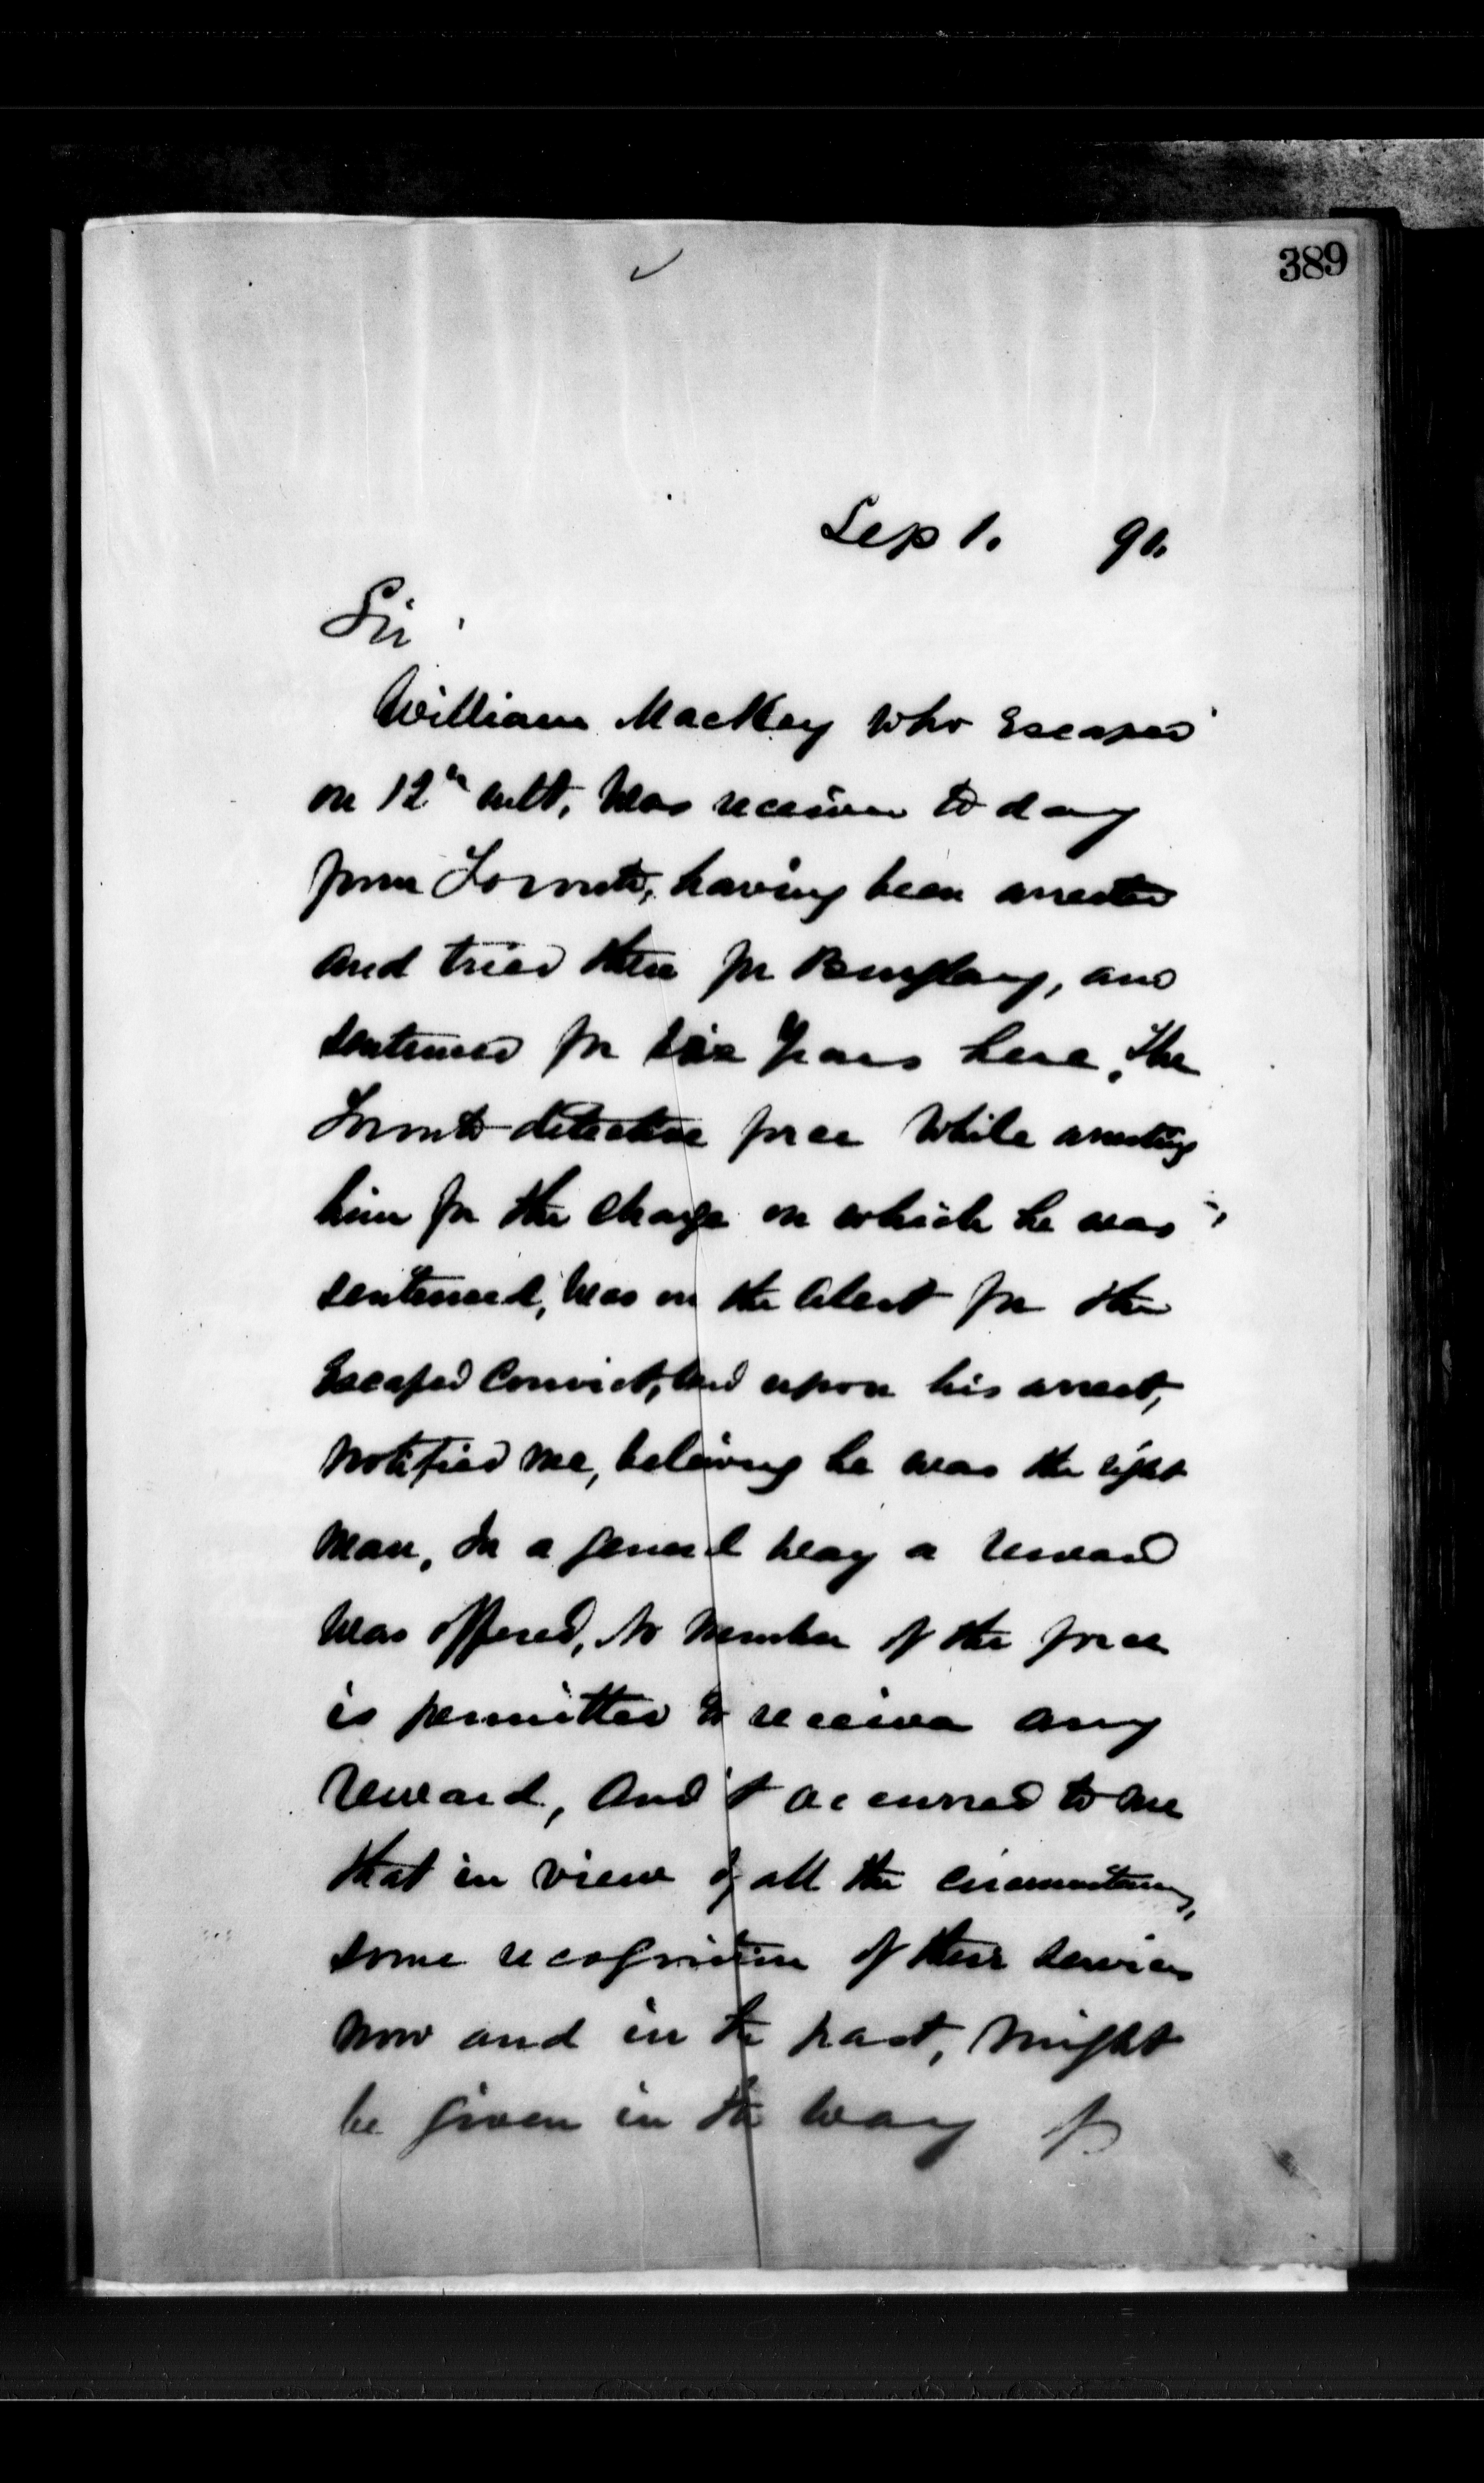 389
Sep 1. 91.
Sir
William MacKey who escaped
on 12th ult, was received to day
from Toronto, having been arrested
and tried there for Burglary, and
sentenced for six years here, the
Toronto detective force while arresting
him for the charge on which he was
sentenced, was on the alert for the
Escaped Convict, and upon his arrest,
notified me, believing he was the right
man, In a general way a reward
was offered, No member of the force
is permitted to receive any
reward, and it occurred to me
that in view of all the circumstances,
some recognition of their services
now and in the past, might
be given in the way of